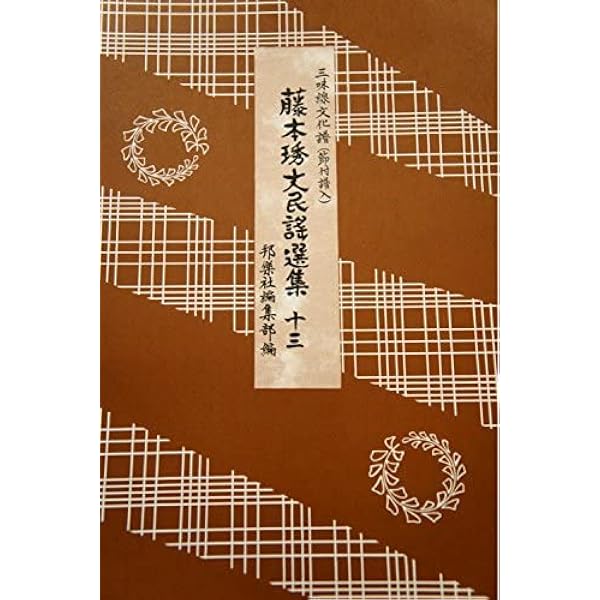 三味線文化譜(節付譜入)
藤本琇丈民謡選集 十三
邦楽社編集部編